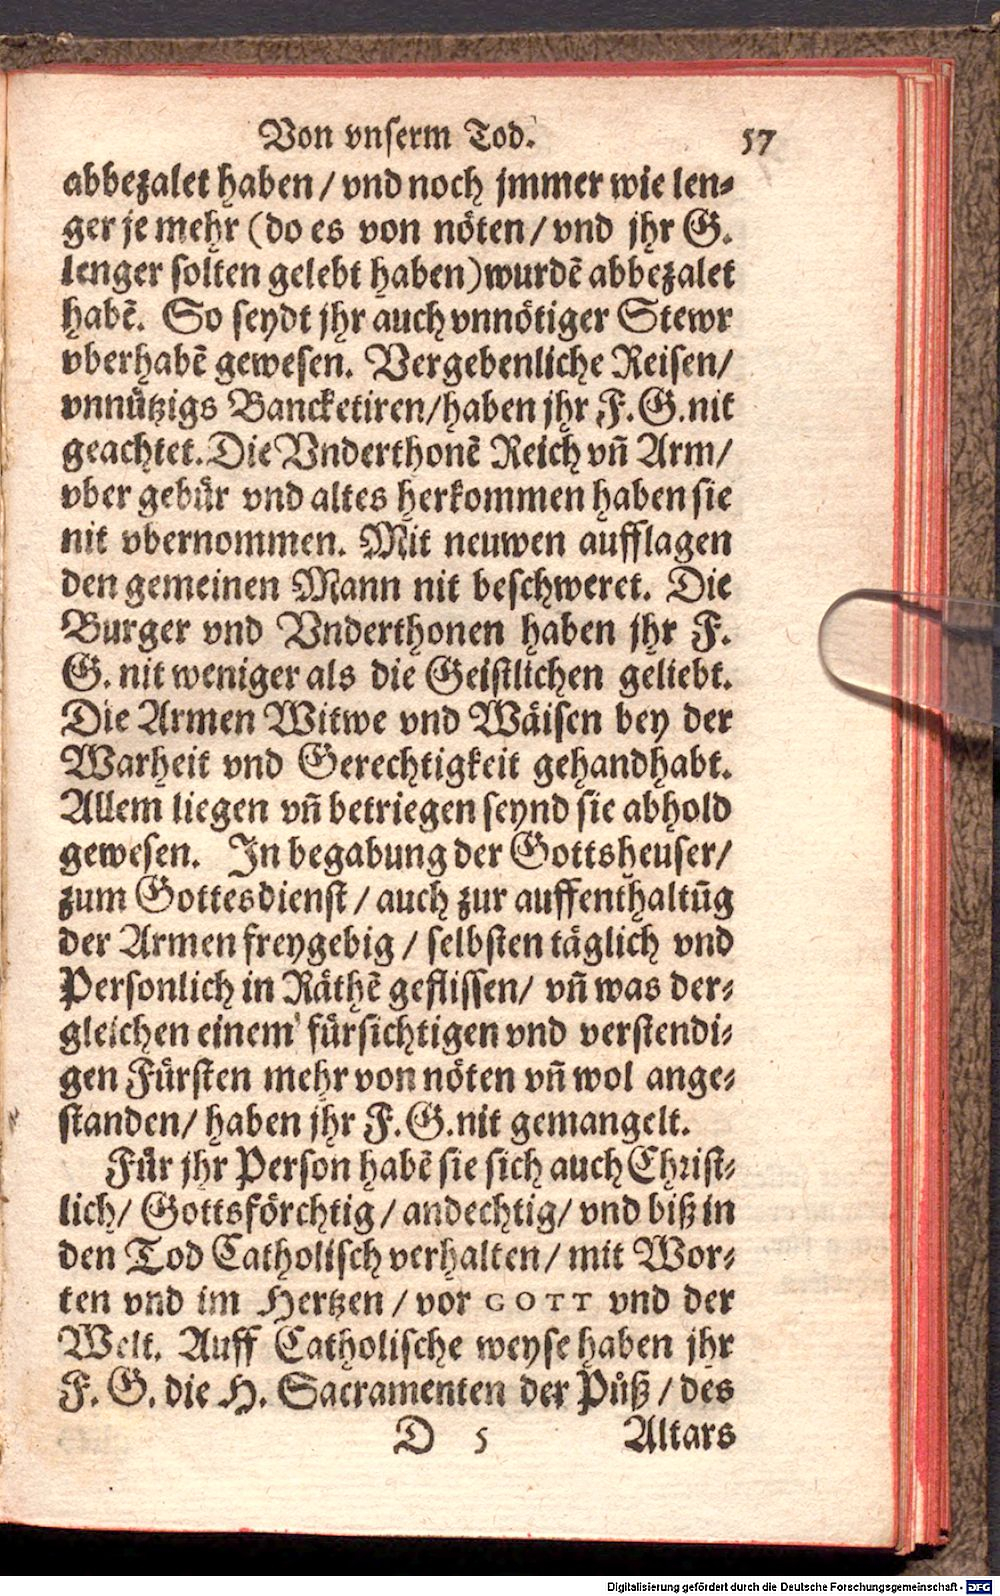 Von vnserm Tod. 57
abbezalet haben / vnd noch jmmer wie len⸗
ger je mehr (do es von nöten / vnd jhr G.
lenger solten gelebt haben) wurdē abbezalet
habē. So seydt jhr auch vnnötiger Stewr
vberhabē gewesen. Vergebenliche Reisen/
vnnützigs Bancketiren/haben jhr F. G. nit
geachtet. Die Vnderthonē Reich vñ Arm/
vber gebür vnd altes herkommen haben sie
nit vbernommen. Mit neuwen aufflagen
den gemeinen Mann nit beschweret. Die
Burger vnd Vnderthonen haben jhr F.
G. nit weniger als die Geistlichen geliebt.
Die Armen Witwe vnd Wäisen bey der
Warheit vnd Gerechtigkeit gehandhabt.
Allem liegen vñ betriegen seynd sie abhold
gewesen. In begabung der Gottsheuser/
zum Gottesdienst / auch zur auffenthaltūg
der Armen freygebig / selbsten täglich vnd
Personlich in Räthē geflissen/ vñ was der⸗
gleichen einem fürsichtigen vnd verstendi⸗
gen Fürsten mehr von nöten vñ wol ange⸗
standen/ haben jhr F. G. nit gemangelt.
Für jhr Person habē sie sich auch Christ⸗
lich/ Gottsförchtig / andechtig/ vnd biß in
den Tod Catholisch verhalten / mit Wor⸗
ten vnd im Hertzen / vor GOTT vnd der
Welt. Auff Catholische weyse haben jhr
F. G. die H. Sacramenten der Püß / des
D 5 Altars
Digitalisierung gefördert durch die Deutsche Forschungsgemeinschaft - DFG